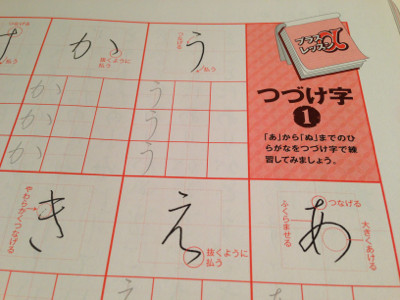 プラス
レッスンα
つづけ字
1
「あ」から「ぬ」までのひ
らがなをつづけ字で練
習してみましょう。
う
払う
う
う
う
か
抜くように
払う
か
か
か
け
あ
つなげる
大きくあける
ふくらませる
え
抜くように
払う
え
き
やわらかくつなげる